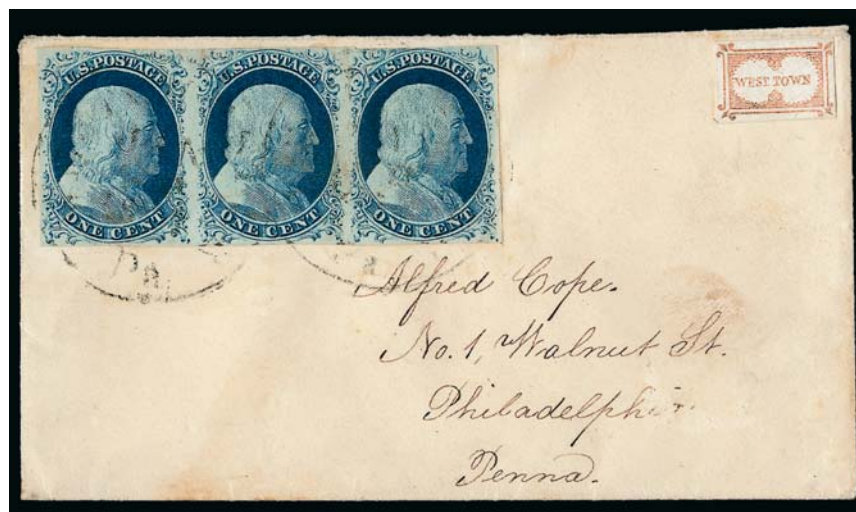 U.S. POSTAGE
ONE CENT
U.S. POSTAGE
ONE CENT
U.S. POSTAGE
ONE CENT
WEST TOWN
Pa.
Alfred Cope.
No. 1, Walnut St.
Philadelphia.
Penna.